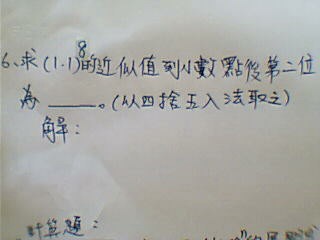 6、求(1.1)⁸的近似值到小數點後第二位
為_____。(以四捨五入法取之)
解：
計算題：